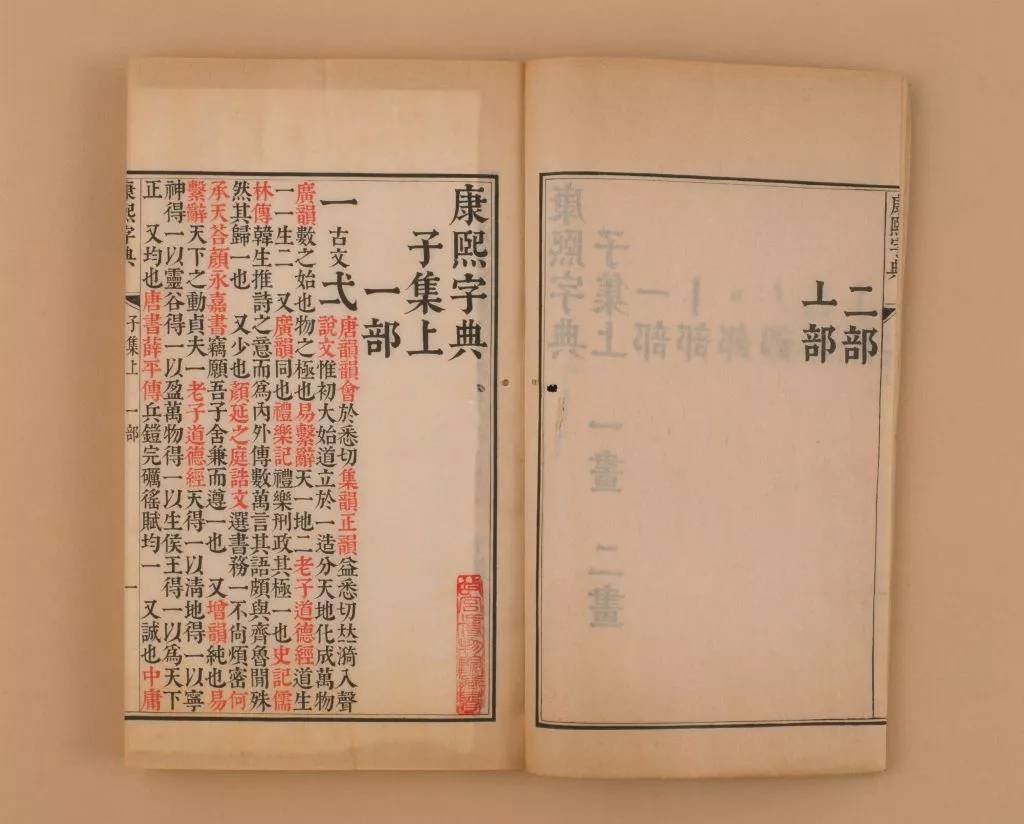 康熙字典
二部
丄部
康熙字典
子集上
一部
一 古文 弌
唐韻韻會於悉切集韻正韻益悉切𠀤漪入聲
說文惟初大始道立於一造分天地化成萬物
廣韻數之始也物之極也易繫辭天一地二老子道德經道生
一一生二 又廣韻同也禮樂記禮樂刑政其極一也史記儒
林傳韓生推詩之意而爲內外傳數萬言其語頗與齊魯閒殊
然其歸一也 又少也顏延之庭誥文選書務一不尙煩密何
承天荅顏永嘉書竊願吾子舍兼而遵一也 又增韻純也易
繫辭天下之動貞夫一老子道德經天得一以淸地得一以寧
神得一以靈谷得一以盈萬物得一以生侯王得一以爲天下
正 又均也唐書薛平傳兵鎧完礪徭賦均一 又誠也中庸
康熙字典 子集上 一部 一